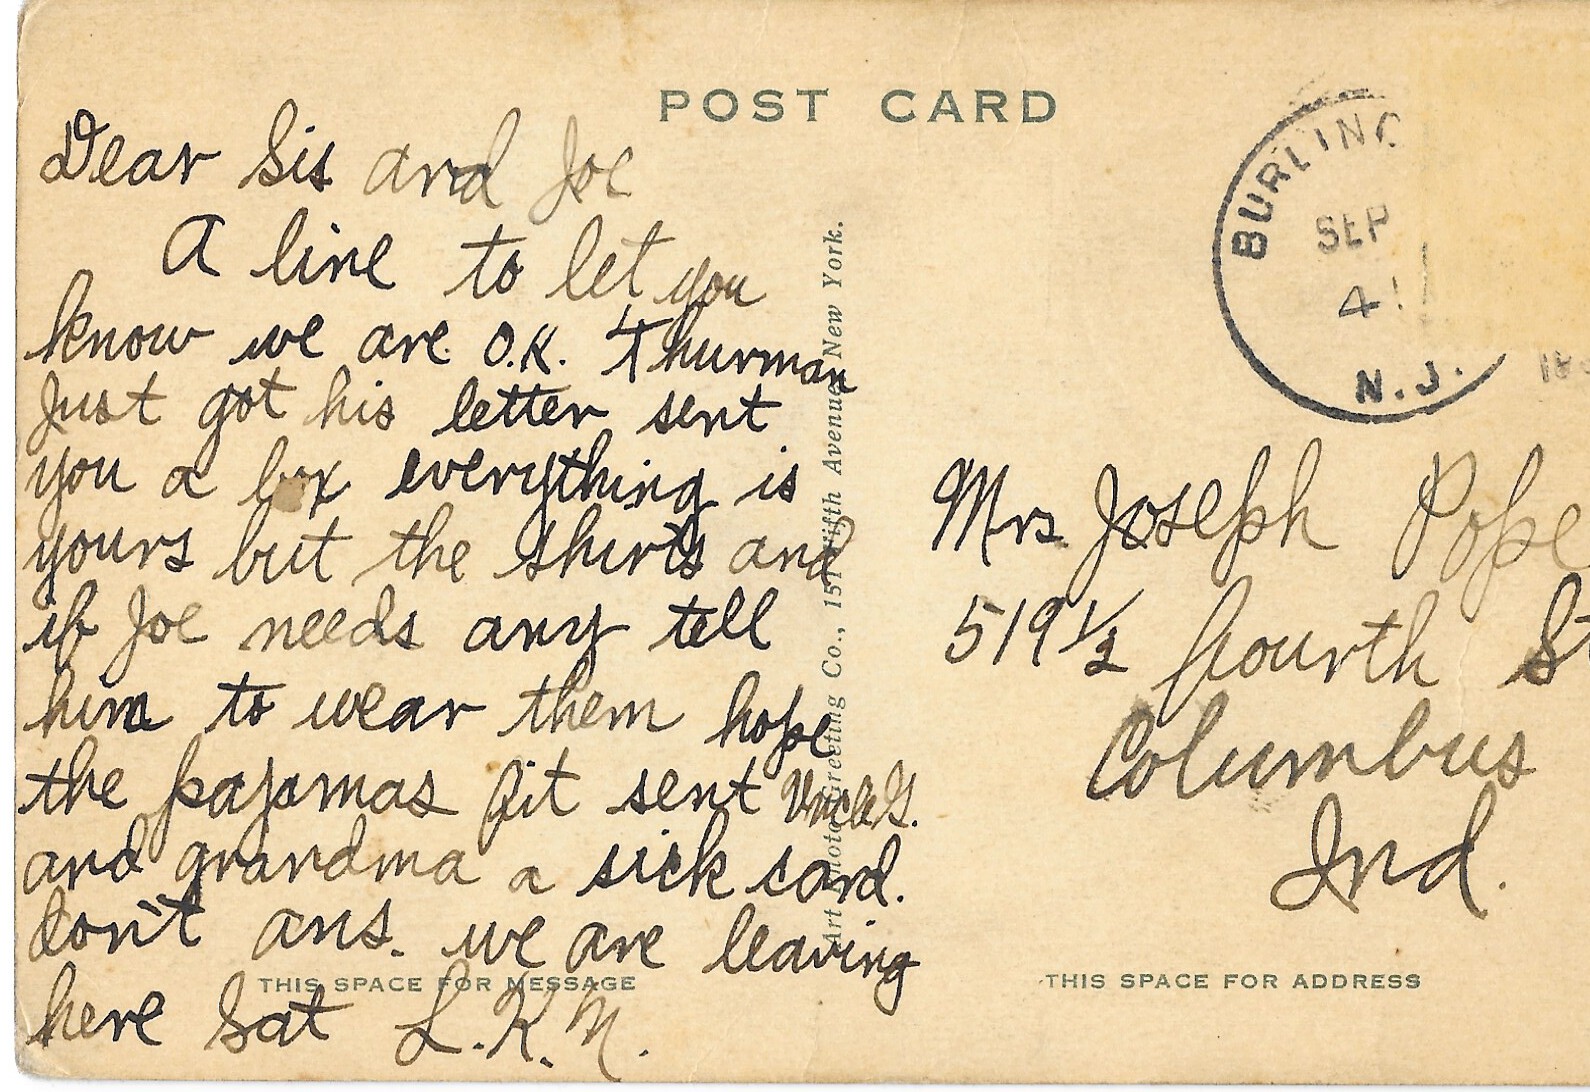 POST CARD
Dear Sis and Joe
A line to let you
know we are O.K. Thurman
Just got his letter sent
you a box everything is
yours but the shirts and
if Joe needs any tell
him to wear them hope
the pajamas fit sent Uncle G.
and grandma a sick card.
don't ans. we are leaving
here Sat L.K.M.
THIS SPACE FOR MESSAGE
Art Photo Greeting Co., 151 Fifth Avenue, New York.
BURLING
SEP
4
N.J.
Mrs. Joseph Pope
519 1/2 fourth St
Columbus
Ind.
THIS SPACE FOR ADDRESS